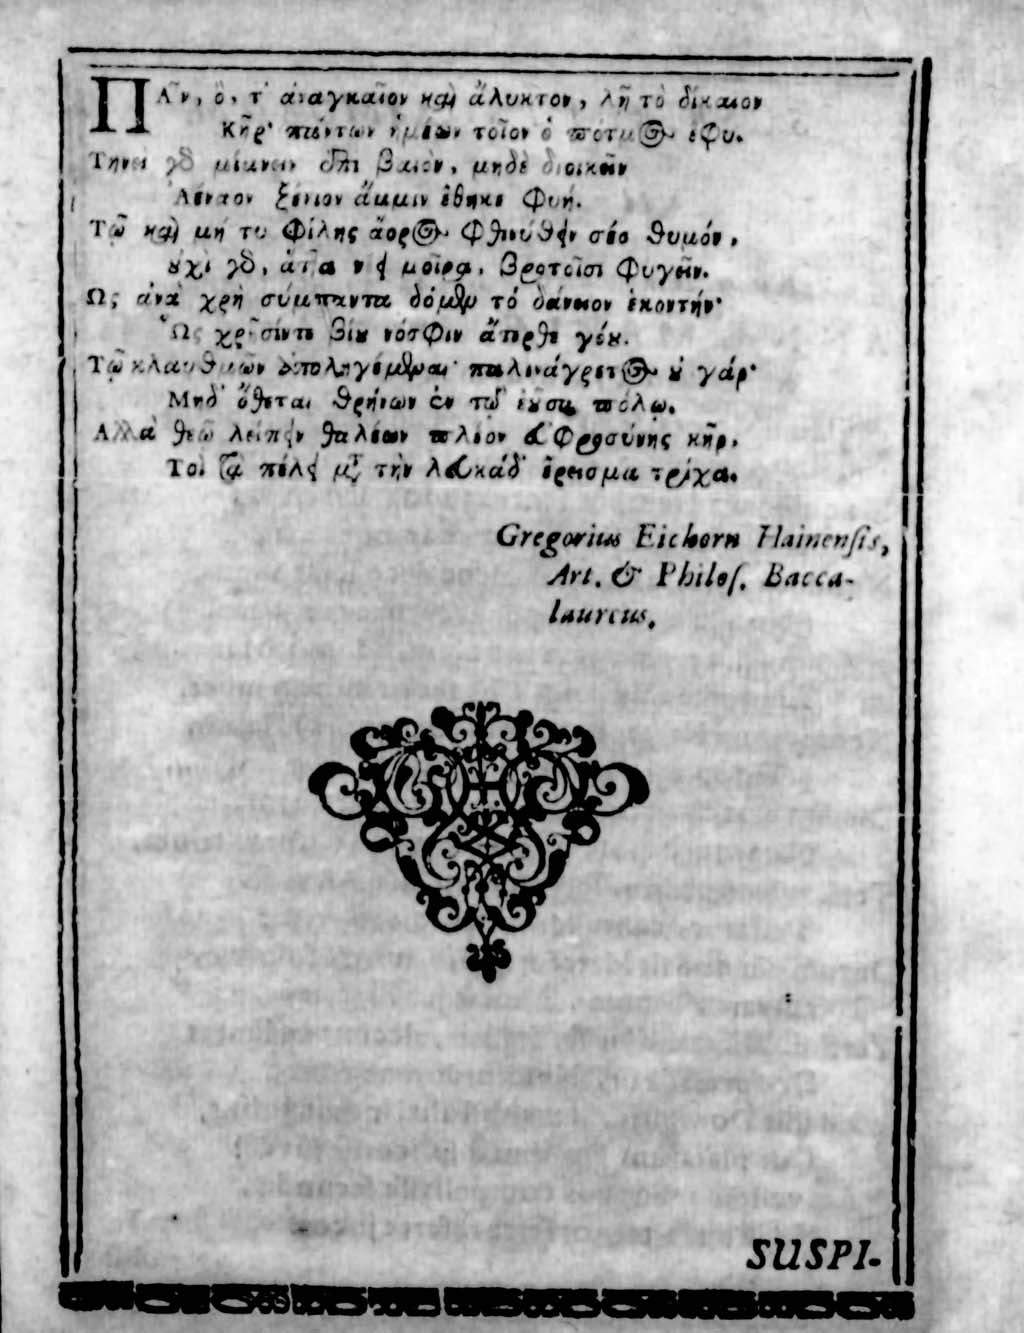 Πᾶν, ὅ, τ' ἀναγκαῖον καὶ ἄλυκτον, λῇ τὸ δίκαιον
Κῆρ· πάντων ἡμέων τοῖον ὁ πότμος ἔφυ.
Τηνεὶ γδ μίμνειν ἐπὶ βαιὸν, μηδὲ διοικεῖν
ξένιον ἄμμιν ἔθηκε Φυή.
Τῷ καὶ μή τυ Φίλης ἄορος Φθινύθειν σέο θυμόν,
ȣχὶ γδ, μοῖρα, βροτοῖσι Φυγεῖν.
Ως ἀνὰ χρὴ σύμπαντα δόμεν τὸ δάνειον ἑκοντήν·
Ὣς βίȣ νόσΦιν ἄτερθε γόȣ.
Τῷ κλαυθμῶν παλινάγρετος ȣ γάρ·
Μηδ' ὄθεται θρήνων ἐν τῷ πόλῳ.
Αλλὰ θεῷ λείπειν θαλέων πλέον εὐΦροσύνης κῆρ,
Τοὶ μτ τὴν λευκάδ' ἔρεισμα τρίχα.
Gregorius Eichorn Hainensis,
Art. & Philos. Bacca-
laureus.
SUSPI-